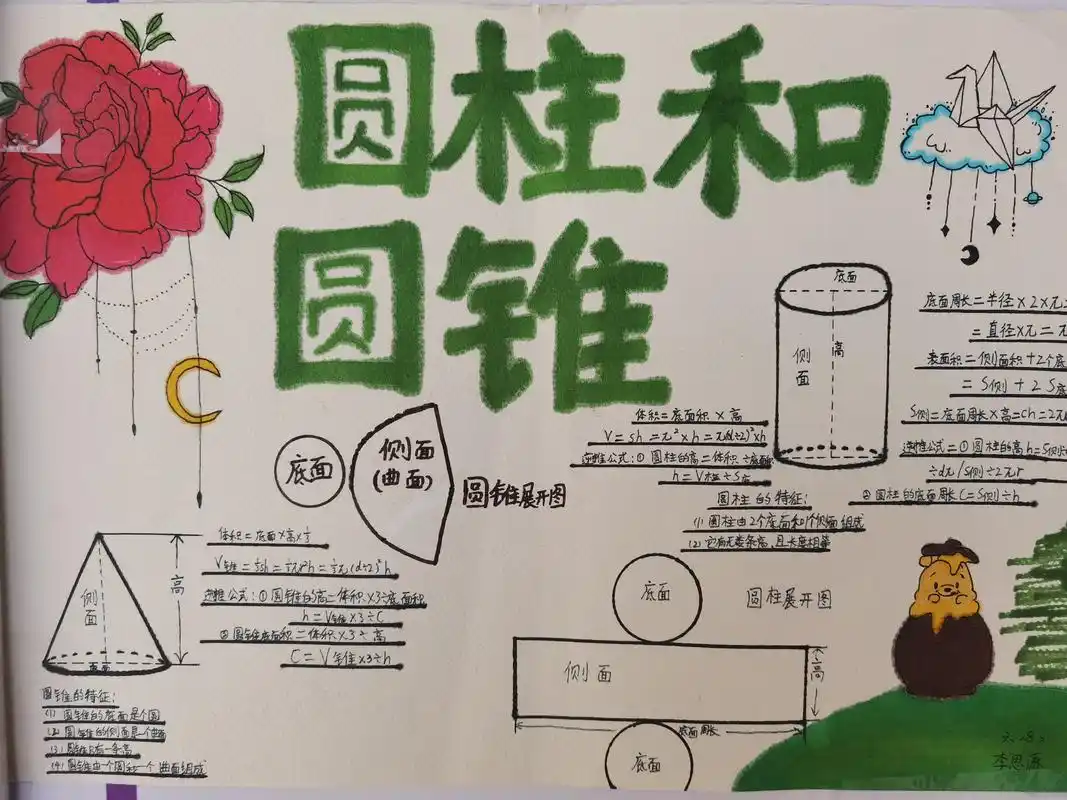 圆柱和
圆锥
底面
侧面
高
底面周长=半径×2×元=
=直径×元=元
表面积=侧面积+2个底
=S侧+2S底
S侧=底面周长×高=ch=2元
逆推公式=①圆柱的高h=S侧÷
÷d元/S侧÷2元r
②圆柱的底面周长C=S侧÷h
体积=底面积×高
V=sh=元²×h=元(d÷2)²×h
逆推公式:①圆柱的高=体积÷底面积
h=V柱÷S底
圆柱的特征:
(1)圆柱由2个底面和1个侧面组成
(2)它有无数条高,且长度相等
底面
侧面
(曲面)
圆锥展开图
体积=底面×高×⅓
V锥=⅓sh=⅓元r²h=⅓元(d÷2)²h
逆推公式:①圆锥的高=体积×3÷底面积
h=V锥×3÷C
②圆锥底面积=体积×3÷高
C=V锥×3÷h
侧面
高
底面
圆锥的特征:
(1)圆锥的底面是个圆
(2)圆锥的侧面是一个曲面
(3)圆锥只有一条高
(4)圆锥由一个圆和一个曲面组成
底面
圆柱展开图
侧面
高
底面周长
底面
李思